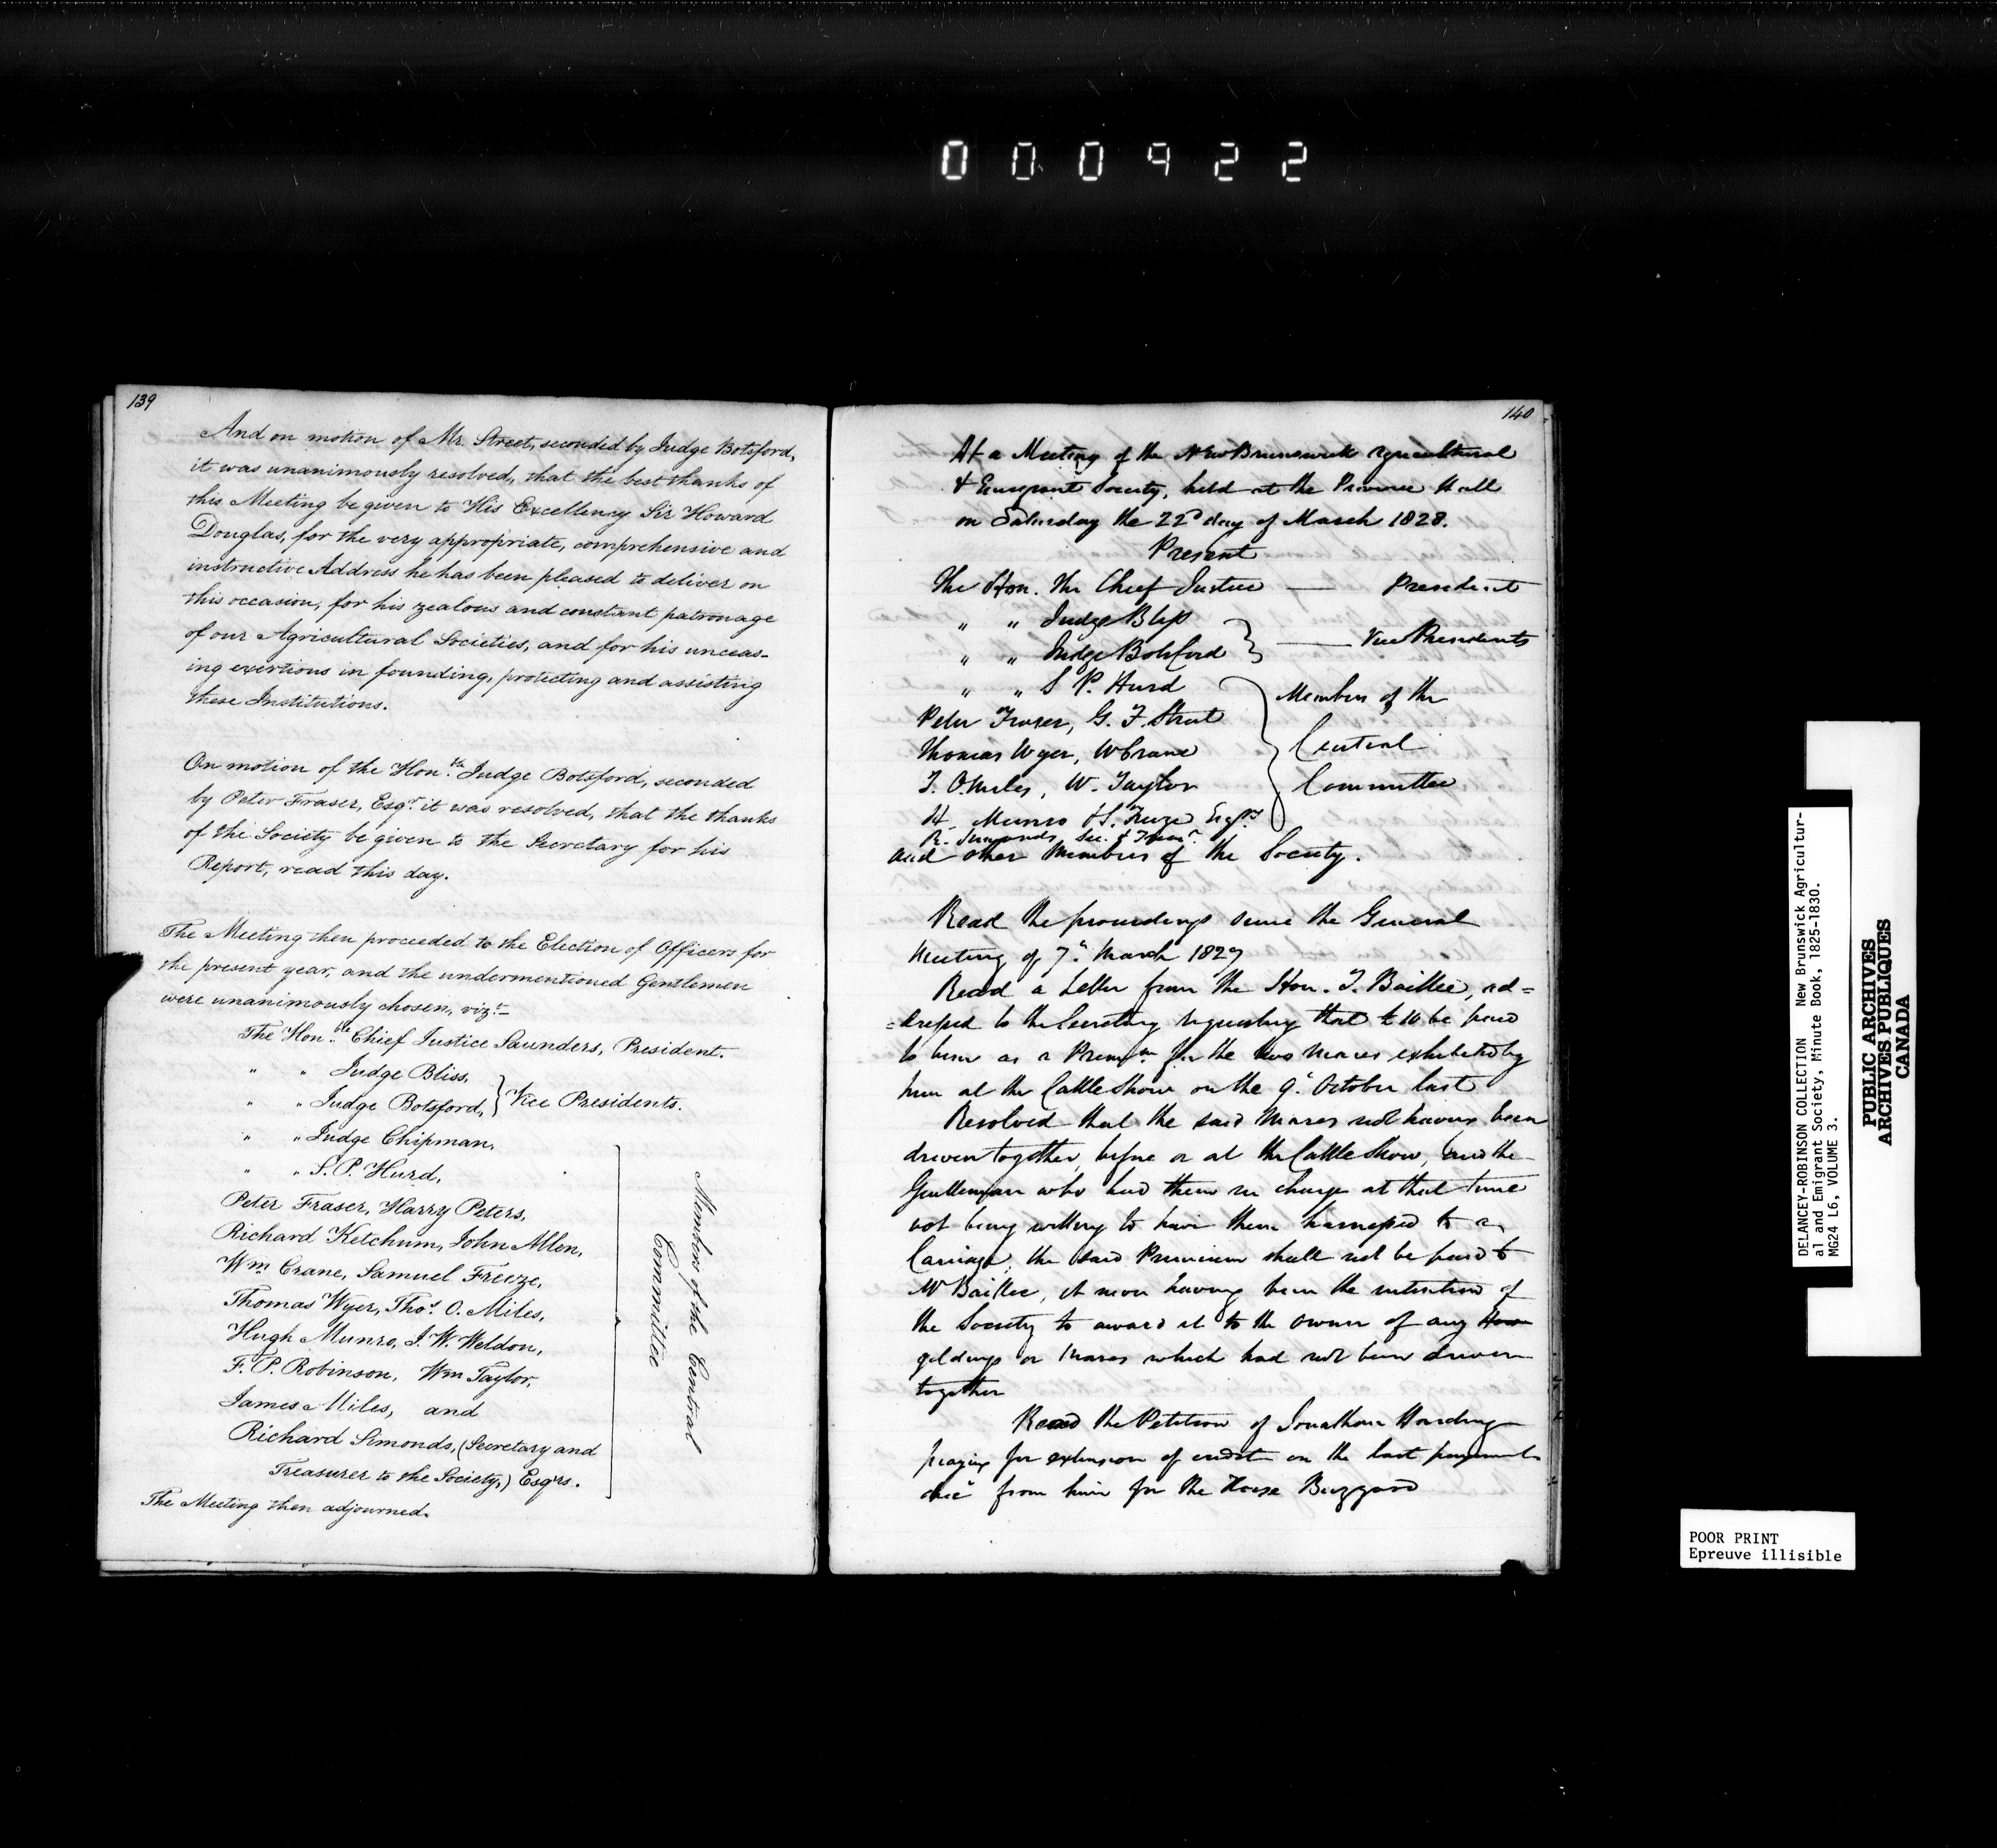 000922
139
And on motion of Mr. Street, seconded by Judge Botsford,
it was unanimously resolved, that the best thanks of
this Meeting be given to His Excellency Sir Howard
Douglas, for the very appropriate, comprehensive and
instructive Address he has been pleased to deliver on
this occasion, for his zealous and constant patronage
of our Agricultural Societies, and for his unceas-
ing exertions in founding, protecting and assisting
these Institutions.
On motion of the Hon.ble Judge Botsford, seconded
by Peter Fraser, Esqr. it was resolved, that the thanks
of the Society be given to the Secretary for his
Report, read this day.
The Meeting then proceeded to the Election of Officers for
the present year, and the undermentioned Gentlemen
were unanimously chosen, vizt.
The Hon.ble Chief Justice Saunders, President.
" " Judge Bliss,
" " Judge Botsford, } Vice Presidents.
" " Judge Chipman,
" " S. P. Hurd,
Peter Fraser, Harry Peters,
Richard Ketchum, John Allen,
Wm. Crane, Samuel Freeze,
Thomas Wyer, Thos. O. Miles,
Hugh Munro, J. W. Weldon,
F. P. Robinson, Wm Taylor,
James Miles, and
Richard Simonds, (Secretary and
Treasurer to the Society,) Esqrs.
Members of the Central
Committee
The Meeting then adjourned.
140
At a Meeting of the New Brunswick Agricultural
& Emigrant Society, held at the Province Hall
on Saturday the 22d day of March 1828.
Present
The Hon. the Chief Justice — President
" " Judge Bliss
" " Judge Botsford } — Vice Presidents
" " S P. Hurd
Peter Fraser, G. F. Street
Thomas Wyer, W Crane
T. O. Miles, W. Taylor
H. Munro & S. Freeze Esqrs
R. Simonds, Sec. & Treasr.
Members of the
Central
Committee
and other Members of the Society.
Read the proceedings since the General
Meeting of 7th March 1827
Read a Letter from the Hon. T. Baillie, ad=
=dressed to the Secretary requesting that £10 be paid
to him as a Premium for the two Mares exhibited by
him at the Cattle Show on the 9th October last
Resolved that the said Mares not having been
driven together, before or at the Cattle Show, and the
Gentleman who had them in charge at that time
not being willing to have them harnessed to a
Carriage, the said Premium shall not be paid to
Mr Baillie, it never having been the intention of
the Society to award it to the owner of any
geldings or Mares which had not been driven
together
Read the Petition of Jonathan Harding
praying for extension of credit on the last payment
due from him for the Horse Buzzard
DELANCEY-ROBINSON COLLECTION New Brunswick Agricultur-
al and Emigrant Society, Minute Book, 1825-1830.
MG24 L6, VOLUME 3.
PUBLIC ARCHIVES
ARCHIVES PUBLIQUES
CANADA
POOR PRINT
Epreuve illisible